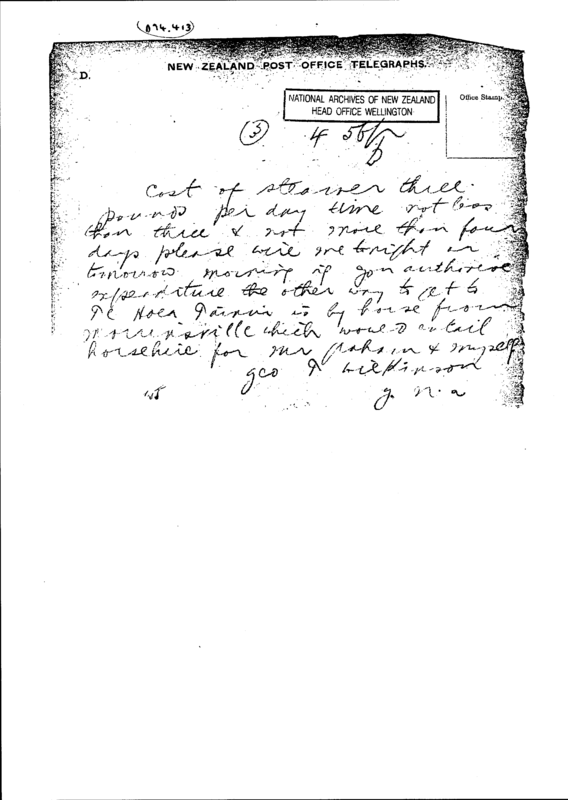 (D74.413)
NEW ZEALAND POST OFFICE TELEGRAPHS.
D.
NATIONAL ARCHIVES OF NEW ZEALAND
HEAD OFFICE WELLINGTON
Office Stamp.
3
4
Cost of steamer three
pounds per day time not less
than three & not more than four
days please wire me tonight or
tomorrow morning if you authorise
expenditure the other way to get to
Te Hoea Tainui is by horse from
Morrinsville which would entail
horsehire for Mr & myself
Geo T Wilkinson
g. n. a